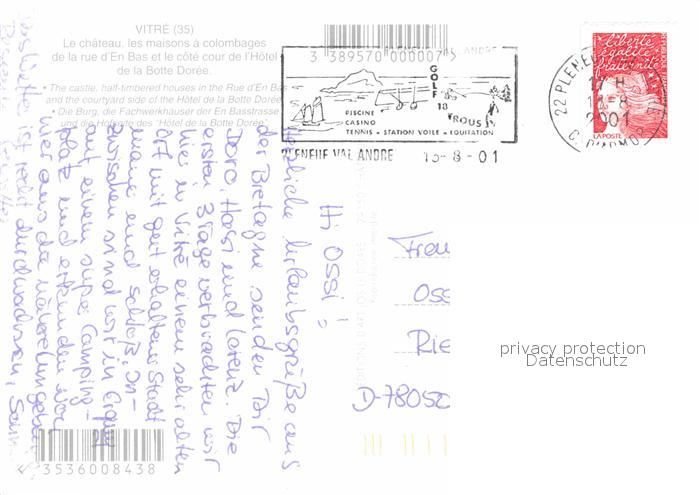 VITRÉ (35)
Le château, les maisons à colombages
de la rue d'En Bas et le côté cour de l'Hôtel
de la Botte Dorée.
• The castle, half-timbered houses in the Rue d'En Bas
and the courtyard side of the Hôtel de la Botte Dorée
• Die Burg, die Fachwerkhäuser der En Basstrasse
und die Hofseite des "Hôtel de la Botte Dorée."
3 389570 000007
VAL ANDRE
GOLF
18
TROUS
PISCINE
CASINO
TENNIS - STATION VOILE - EQUITATION
PLENEUF VAL ANDRE 13-8-01
22 PLENEUF
17 H
13-8
2001
C. D'ARMOR
liberté
égalité
fraternité
LA POSTE
Hi Ossi!
Herzliche Urlaubsgrüße aus
der Bretagne senden Dir
Doro, Hasi und Lorenz. Die
ersten 3 Tage verbrachten wir
hier in Vitré einem sehr alten
Ort mit gut erhaltener Stadt
mauer und Schloß. In-
zwischen sind wir in
auf einem super Camping-
platz und erkunden von
hier aus die nähere Umgebung
Das Wetter ist recht durchwachsen,
Frau
Oss
Rie
D-78050
privacy protection
Datenschutz
3536008438